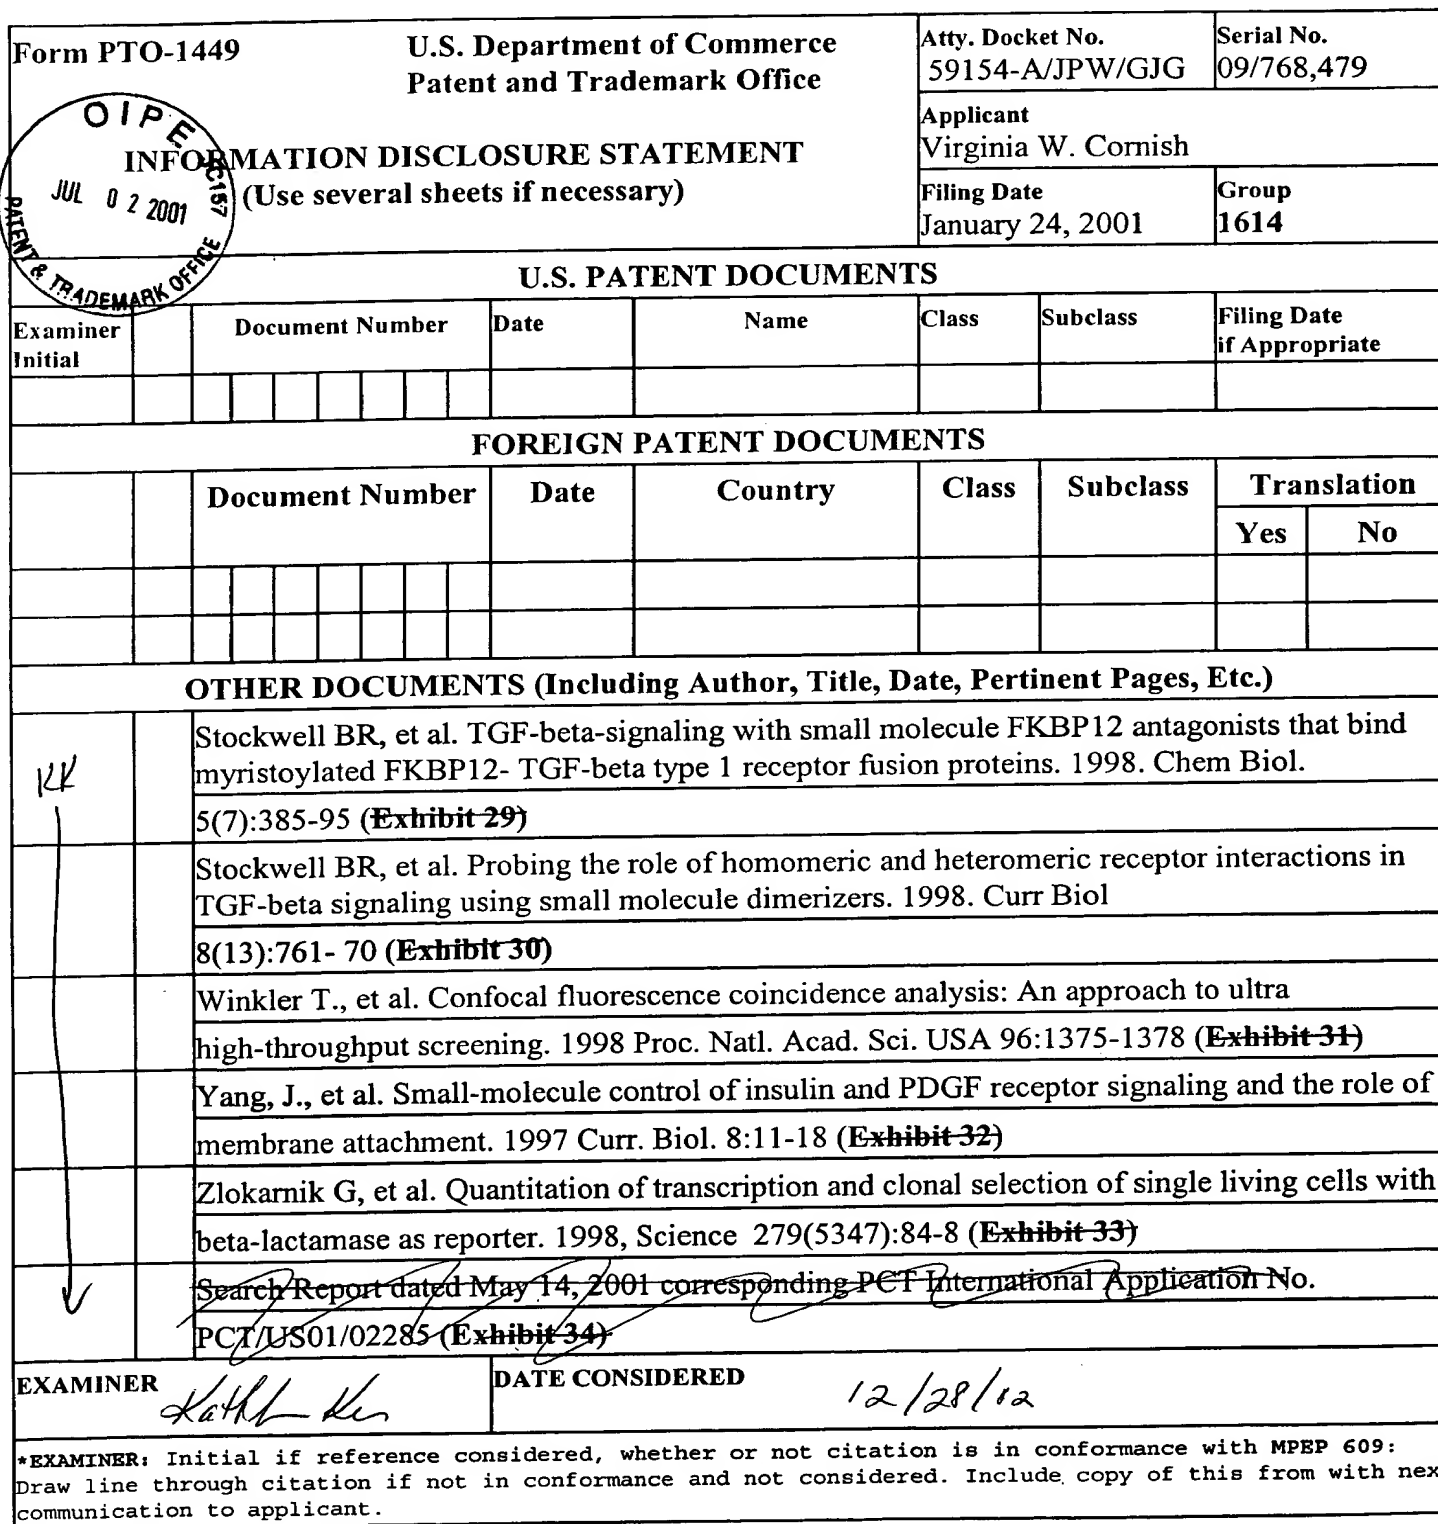 Form PTO-1449
U.S. Department of Commerce
Patent and Trademark Office
Atty. Docket No.
59154-A/JPW/GJG
Serial No.
09/768,479
OIPE
JC157
JUL 02 2001
PATENT & TRADEMARK OFFICE
INFORMATION DISCLOSURE STATEMENT
(Use several sheets if necessary)
Applicant
Virginia W. Cornish
Filing Date
January 24, 2001
Group
1614
U.S. PATENT DOCUMENTS
Examiner
Initial
Document Number
Date
Name
Class
Subclass
Filing Date
if Appropriate
FOREIGN PATENT DOCUMENTS
Document Number
Date
Country
Class
Subclass
Translation
Yes
No
OTHER DOCUMENTS (Including Author, Title, Date, Pertinent Pages, Etc.)
KK
Stockwell BR, et al. TGF-beta-signaling with small molecule FKBP12 antagonists that bind
myristoylated FKBP12- TGF-beta type 1 receptor fusion proteins. 1998. Chem Biol.
5(7):385-95 (Exhibit 29)
Stockwell BR, et al. Probing the role of homomeric and heteromeric receptor interactions in
TGF-beta signaling using small molecule dimerizers. 1998. Curr Biol
8(13):761- 70 (Exhibit 30)
Winkler T., et al. Confocal fluorescence coincidence analysis: An approach to ultra
high-throughput screening. 1998 Proc. Natl. Acad. Sci. USA 96:1375-1378 (Exhibit 31)
Yang, J., et al. Small-molecule control of insulin and PDGF receptor signaling and the role of
membrane attachment. 1997 Curr. Biol. 8:11-18 (Exhibit 32)
Zlokarnik G, et al. Quantitation of transcription and clonal selection of single living cells with
beta-lactamase as reporter. 1998, Science 279(5347):84-8 (Exhibit 33)
Search Report dated May 14, 2001 corresponding PCT International Application No.
PCT/US01/02285 (Exhibit 34)
EXAMINER
DATE CONSIDERED
12/28/02
*EXAMINER: Initial if reference considered, whether or not citation is in conformance with MPEP 609:
Draw line through citation if not in conformance and not considered. Include copy of this from with nex
communication to applicant.